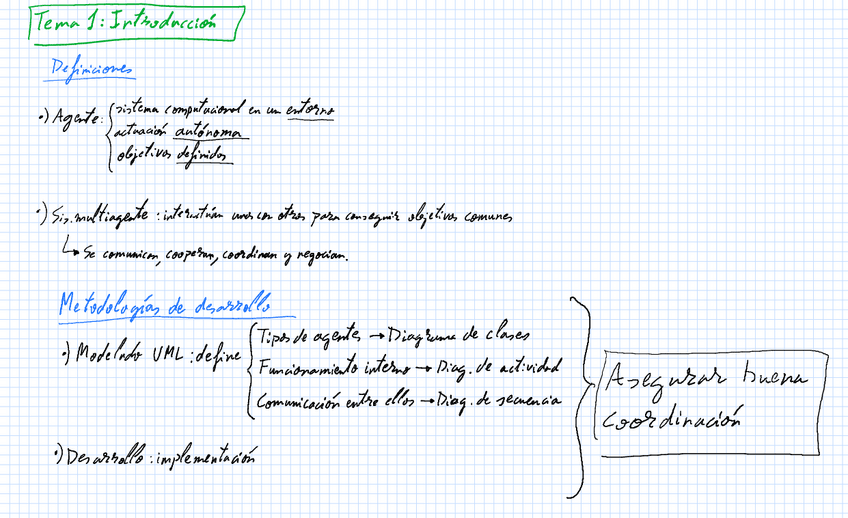 Tema 1: Introducción
Definiciones
•) Agente: sistema computacional en un entorno
actuación autónoma
objetivos definidos
•) Sis. multiagente: interactúan unos con otros para conseguir objetivos comunes
↳ Se comunican, cooperan, coordinan y negocian.
Metodologías de desarrollo
•) Modelado UML: define
Tipos de agentes → Diagrama de clases
Funcionamiento interno → Diag. de actividad
Comunicación entre ellos → Diag. de secuencia
•) Desarrollo: implementación
Asegurar buena
coordinación